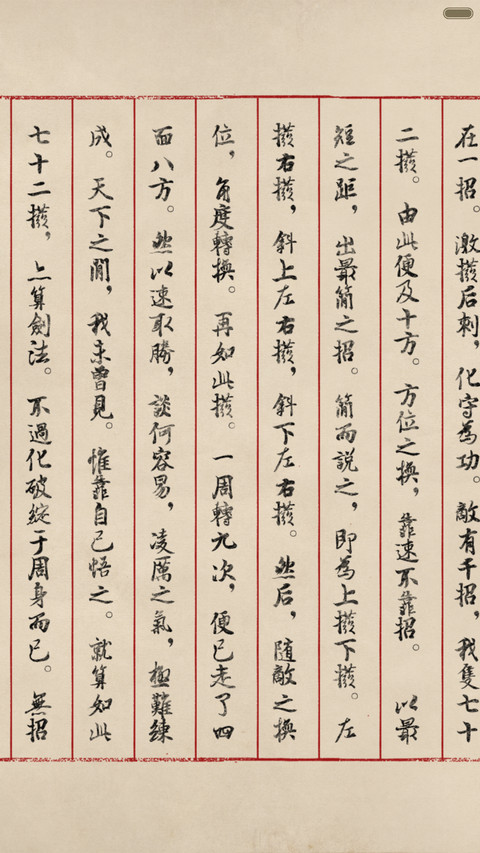 在一招。激㩢后刺，化守為功。敵有千招，我隻七十
二㩢。由此便及十方。方位之換，靠速不靠招。以最
短之距，出最簡之招。簡而說之，即為上㩢下㩢。左
㩢右㩢，斜上左右㩢，斜下左右㩢。然后，随敵之換
位，角度轉換。再如此㩢。一周轉九次，便已走了四
面八方。然以速取勝，談何容易，凌厲之氣，極難練
成。天下之間，我未曾見。惟靠自己悟之。就算如此
七十二㩢，亦算劍法。不過化破綻于周身而已。無招